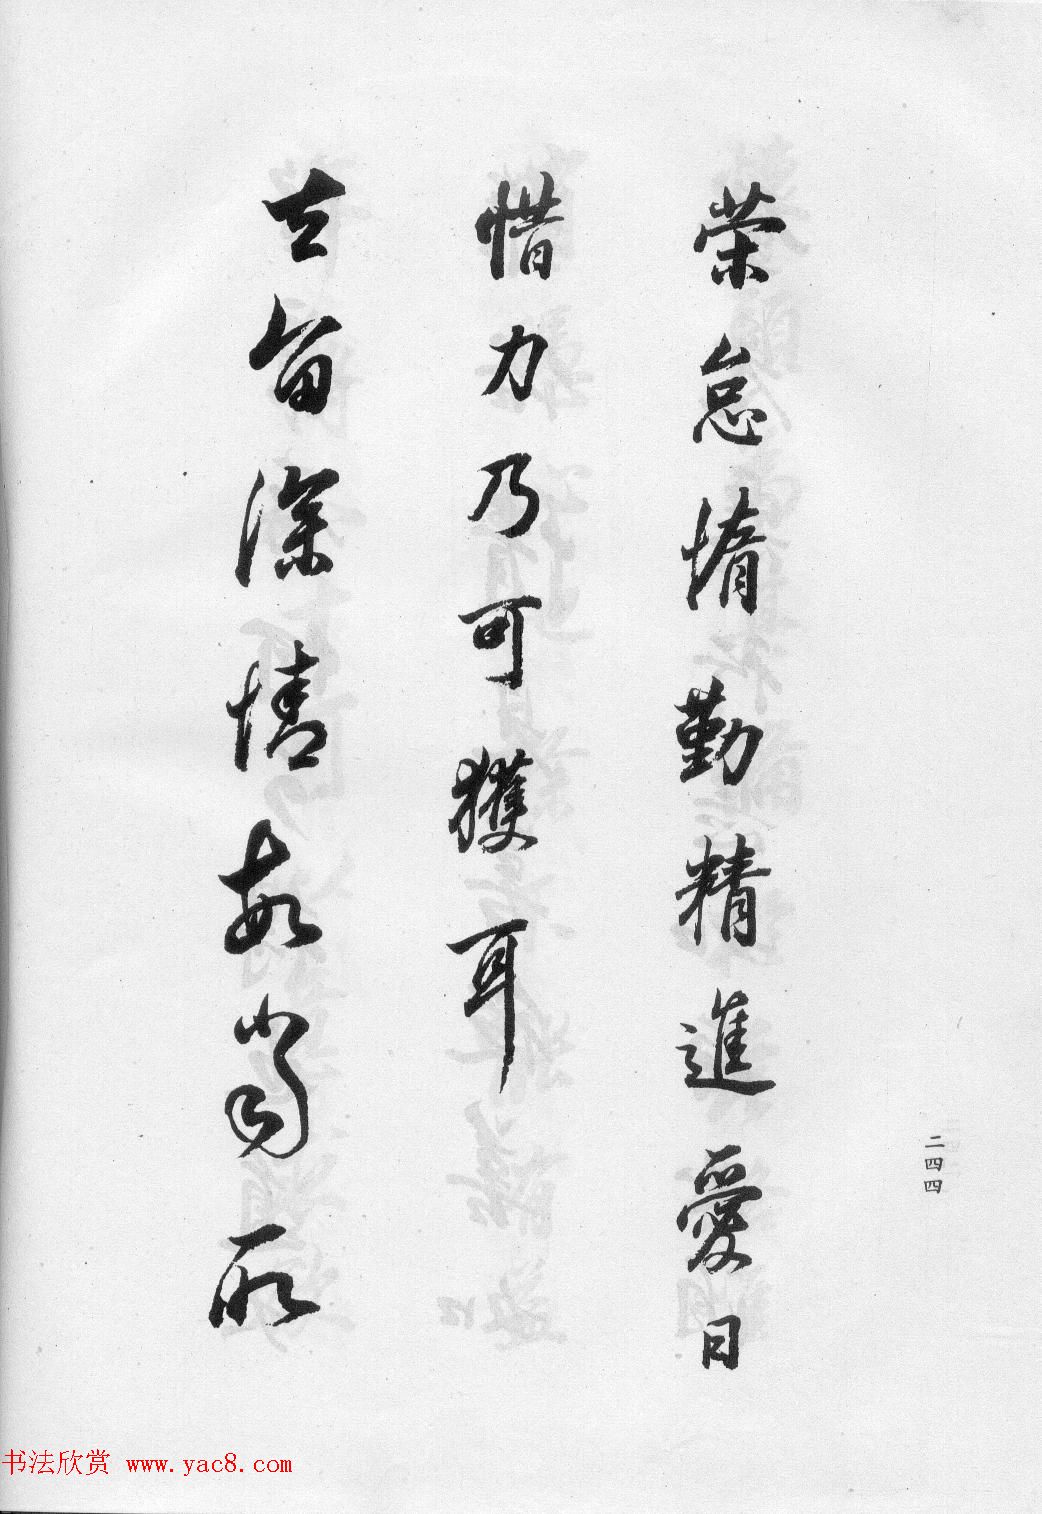 荣怠惰勤精進愛日
惜力乃可獲耳
去留深情故當所
二四四
书法欣赏 www.yac8.com